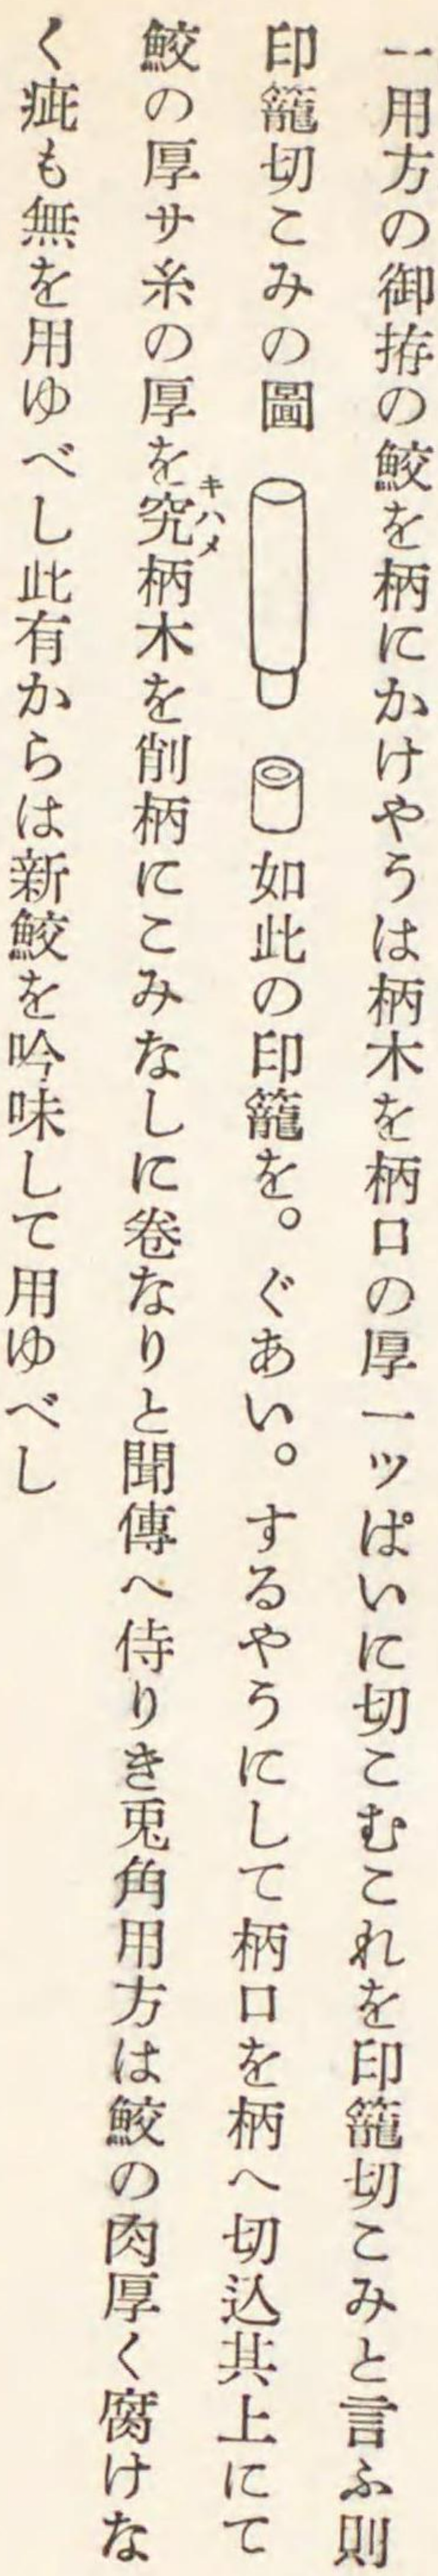 一用方の御拵の鮫を柄にかけやうは柄木を柄口の厚一ッぱいに切こむこれを印籠切こみと言ふ則
印籠切こみの圖如此の印籠を。ぐあい。するやうにして柄口を柄へ切込其上にて
鮫の厚サ糸の厚を究キハメ柄木を削柄にこみなしに卷なりと聞傳へ侍りき兎角用方は鮫の肉厚く腐けな
く疵も無を用ゆべし此有からは新鮫を吟味して用ゆべし